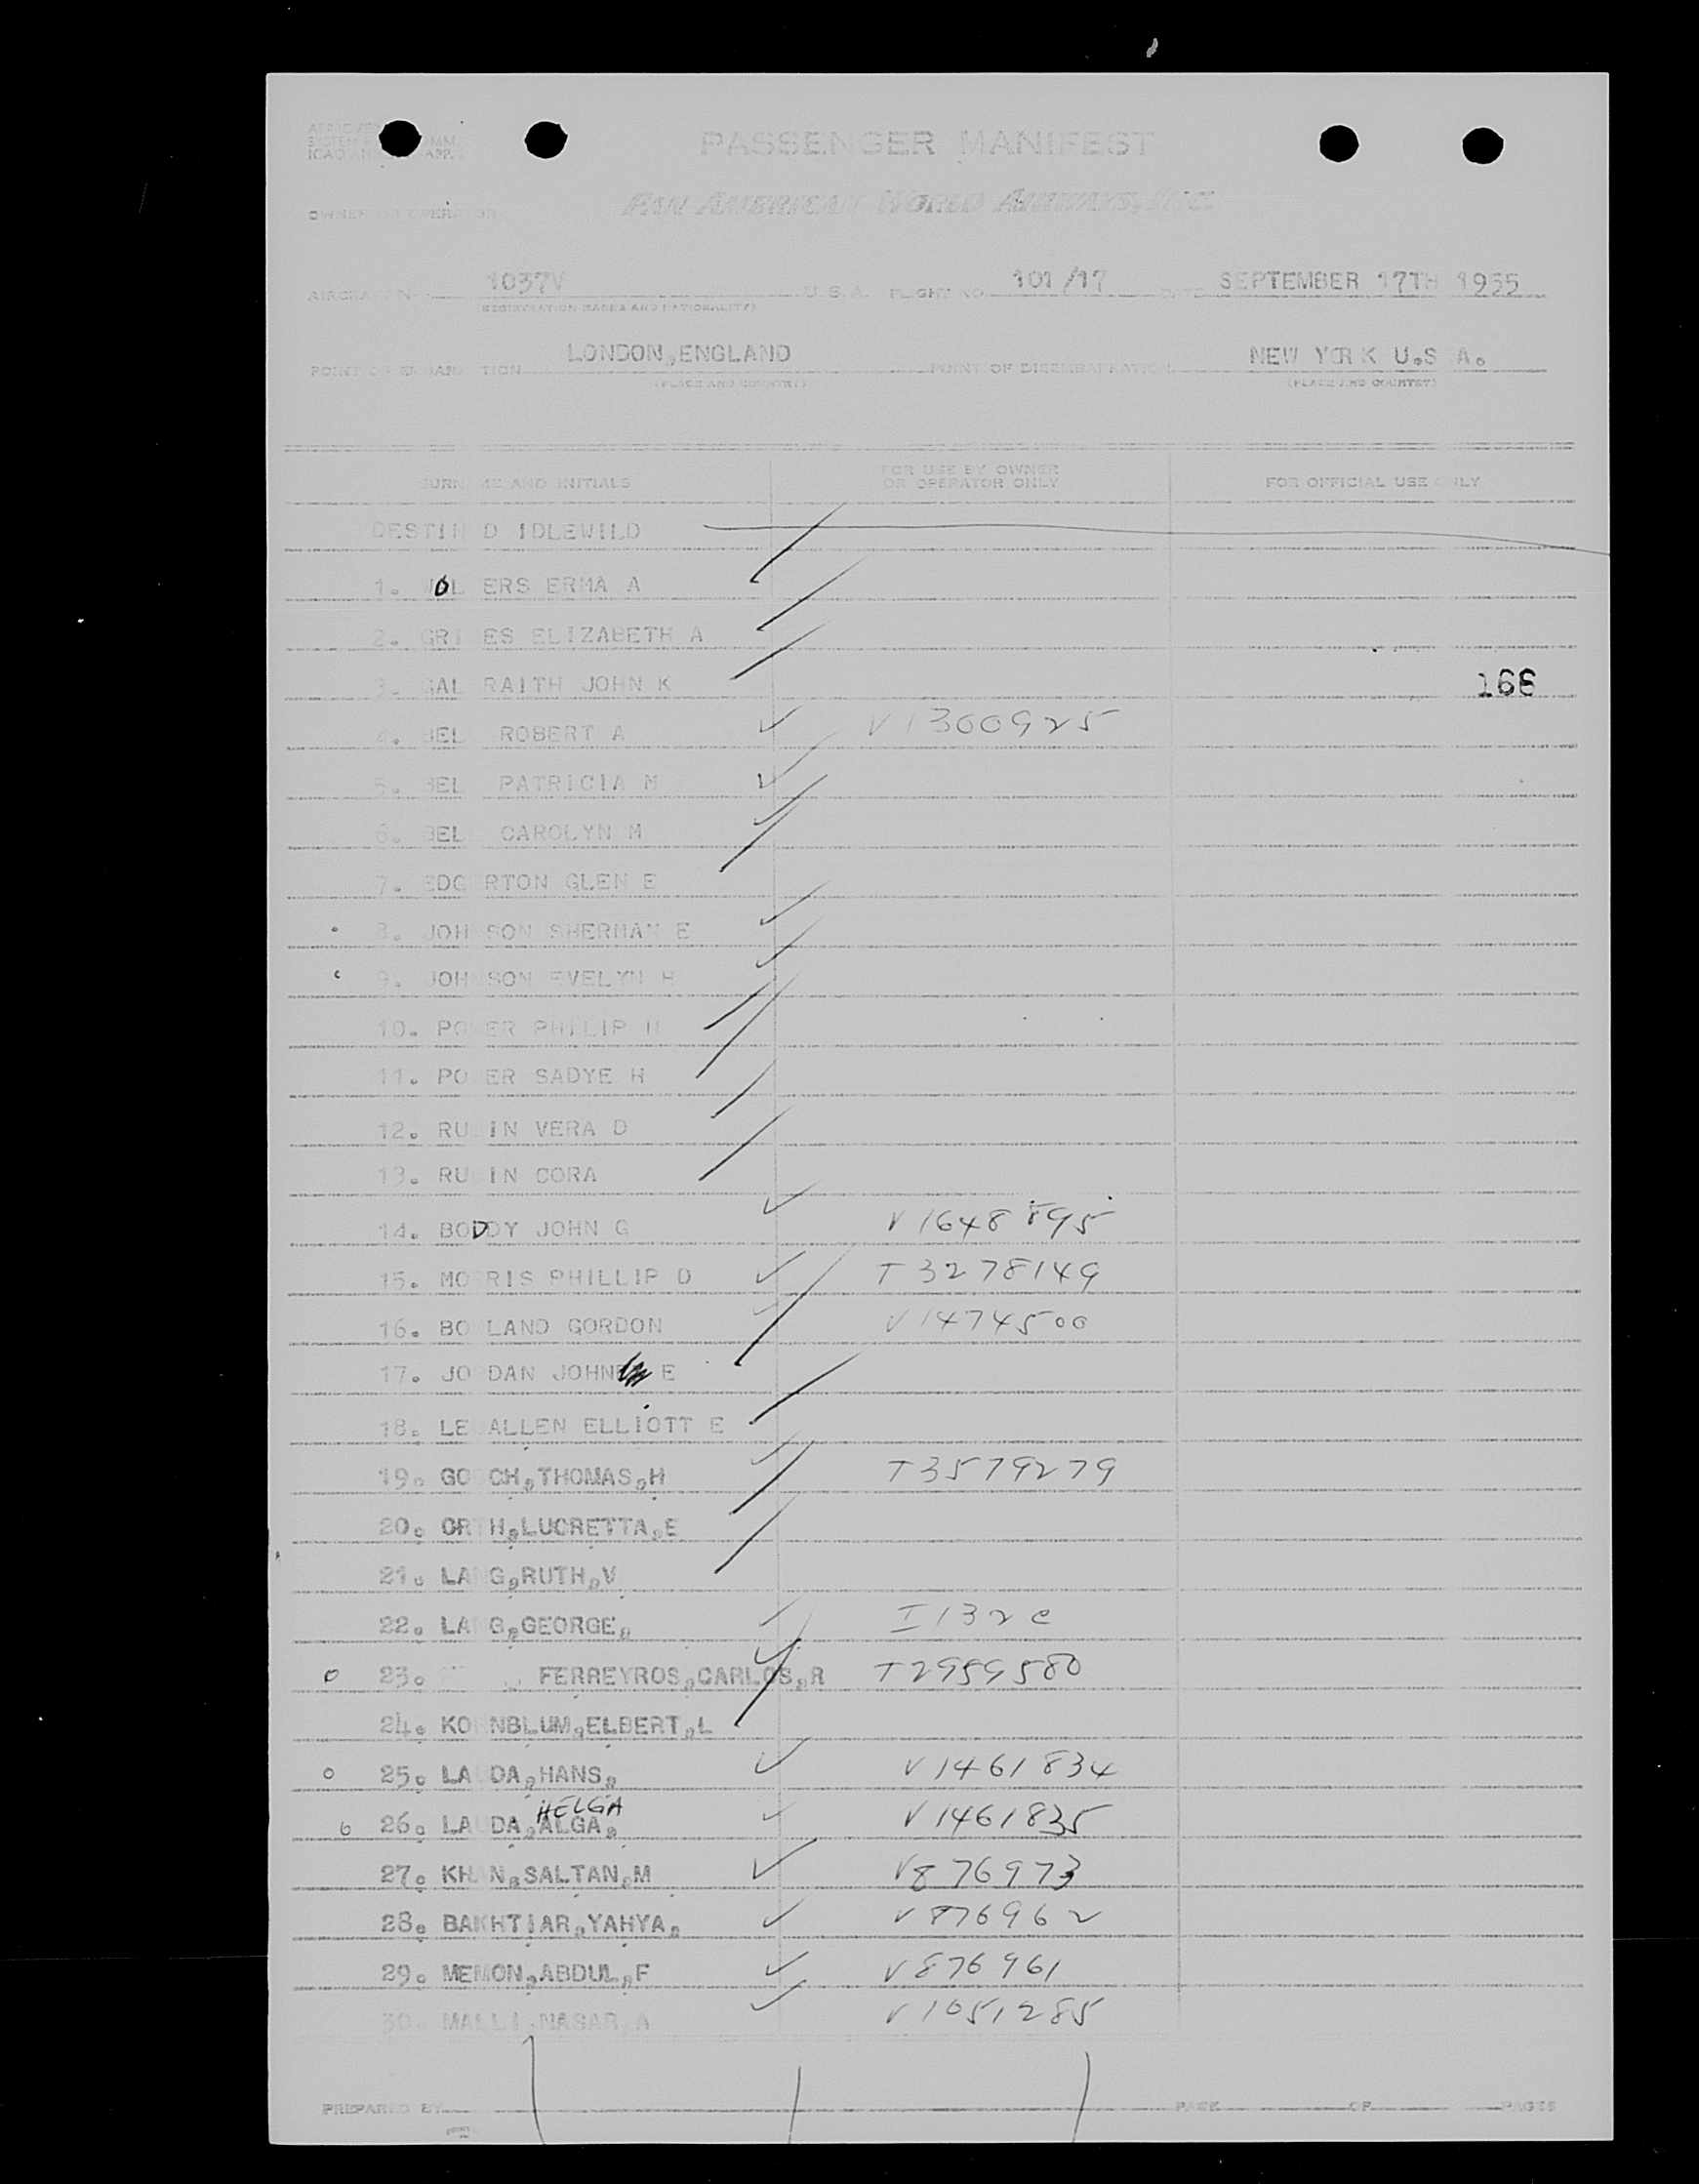 PASSENGER MANIFEST
OWNER OR OPERATOR PAN AMERICAN WORLD AIRWAYS, INC.
1037V U.S.A. FLIGHT NO. 101/17 DATE SEPTEMBER 17TH 1955
(REGISTRATION MARKS AND NATIONALITY)
LONDON,ENGLAND POINT OF DISEMBARKATION NEW YORK U.S A.
(PLACE AND COUNTRY) (PLACE AND COUNTRY)
SURN ME AND INITIALS FOR USE BY OWNER OR OPERATOR ONLY FOR OFFICIAL USE ONLY
DESTIN D IDLEWILD
1. WOL ERS ERMA A
2. GRI ES ELIZABETH A
3. GAL RAITH JOHN K 166
4. BEL ROBERT A V1300925
5. BEL PATRICIA M
6. BEL CAROLYN M
7. EDG RTON GLEN E
8. JOH SON SHERMAN E
9. JOH SON EVELYN H
10. PO ER PHILIP H
11. PO ER SADYE H
12. RU IN VERA D
13. RU IN CORA
14. BODDY JOHN G V1648895
15. MO RIS PHILLIP D T3278149
16. BO LAND GORDON V1474500
17. JO DAN JOHN E
18. LE ALLEN ELLIOTT E
19. GO CH,THOMAS,H T3579279
20. OR H,LUCRETTA,E
21. LA G,RUTH,V
22. LA G,GEORGE, I132c
23. FERREYROS,CARLOS,R T2959580
24. KO NBLUM,ELBERT,L
25. LA DA,HANS, V1461834
HELGA
26. LA DA,ALGA, V1461835
27. KHAN,SALTAN,M V876973
28. BAKHTIAR,YAHYA, V876962
29. MEMON,ABDUL,F V876961
30. MALLI,NASAR,A V1051285
PREPARED BY PAGE OF PAGES